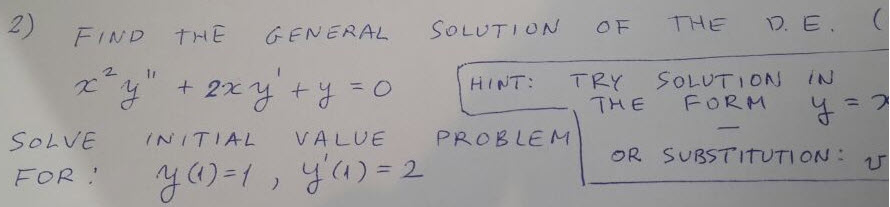 2) FIND THE GENERAL SOLUTION OF THE D. E. (
x² y" + 2x y' + y = 0
HINT: TRY SOLUTION IN
THE FORM y =
OR SUBSTITUTION:
SOLVE INITIAL VALUE PROBLEM
FOR: y(1)=1, y'(1)=2